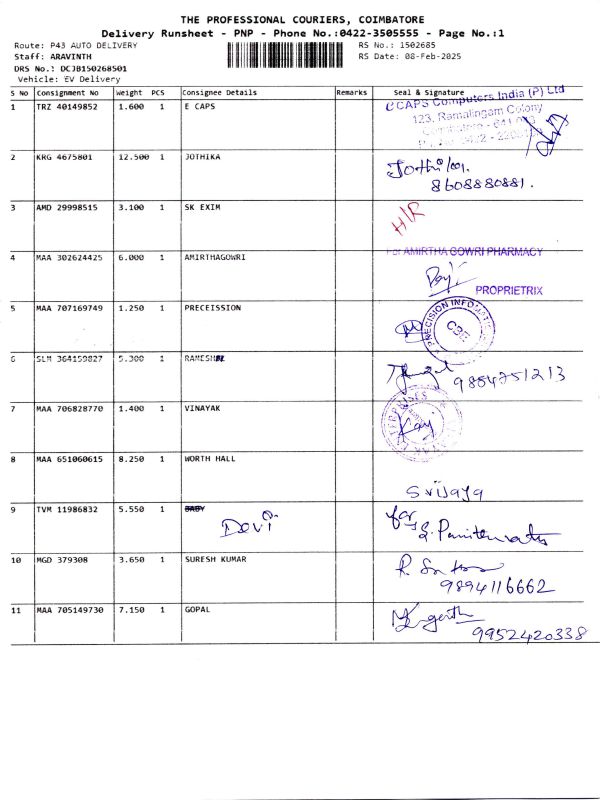 THE PROFESSIONAL COURIERS, COIMBATORE
Delivery Runsheet - PNP - Phone No.:0422-3505555 - Page No.:1
Route: P43 AUTO DELIVERY RS No.: 1502685
Staff: ARAVINTH RS Date: 08-Feb-2025
DRS No.: DCJB150268501
Vehicle: EV Delivery
S No Consignment No Weight PCS Consignee Details Remarks Seal & Signature
1 TRZ 40149852 1.600 1 E CAPS
E CAPS Computers India (P) Ltd
123, Ramalingam Colony
2 KRG 4675801 12.500 1 JOTHIKA
8608880881.
3 AMD 29998515 3.100 1 SK EXIM
H/R
4 MAA 302624425 6.000 1 AMIRTHAGOWRI
For AMIRTHA GOWRI PHARMACY
PROPRIETRIX
5 MAA 707169749 1.250 1 PRECEISSION
PRECISION INFOMATIC
CBE
6 SLM 364159827 5.300 1 RAMESH
9884751213
7 MAA 706828770 1.400 1 VINAYAK
ENTERPRISES
8 MAA 651060615 8.250 1 WORTH HALL
Srijaya
9 TVM 11986832 5.550 1 BABY
Devi
10 MGD 379308 3.650 1 SURESH KUMAR
9894116662
11 MAA 705149730 7.150 1 GOPAL
9952420338